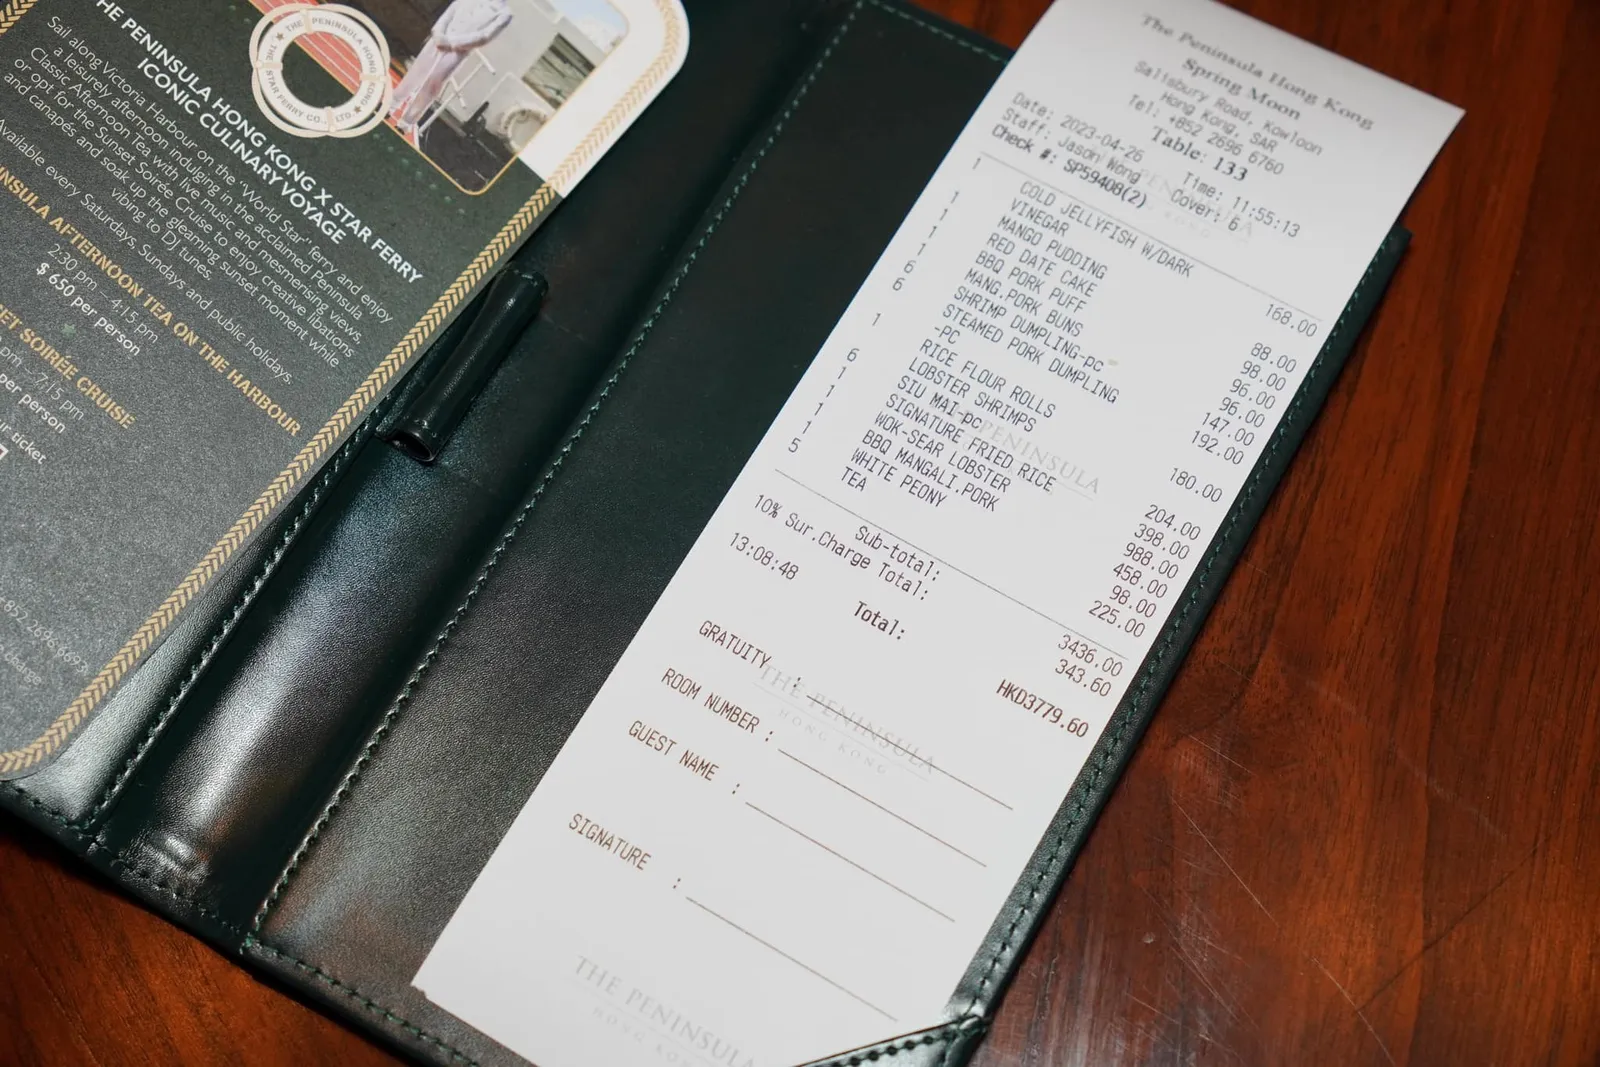 THE PENINSULA HONG KONG
THE STAR FERRY CO., LTD.
HE PENINSULA HONG KONG X STAR FERRY
ICONIC CULINARY VOYAGE
Sail along Victoria Harbour on the "World Star" ferry and enjoy
a leisurely afternoon indulging in the acclaimed Peninsula
Classic Afternoon Tea with live music and mesmerising views,
or opt for the Sunset Soirée Cruise to enjoy creative libations
and canapés and soak up the gleaming sunset moment while
vibing to DJ tunes.
Available every Saturdays, Sundays and public holidays.
NINSULA AFTERNOON TEA ON THE HARBOUR
2:30 pm – 4:15 pm
$ 650 per person
SET SOIRÉE CRUISE
pm – 7:15 pm
per person
ur ticket
852 2696 6692
The Peninsula Hong Kong
Spring Moon
Salisbury Road, Kowloon
Hong Kong, SAR
Tel: +852 2696 6760
Table: 133
Date: 2023-04-26 Time: 11:55:13
Staff: Jason Wong Cover: 6
Check #: SP59408(2)
1 COLD JELLYFISH W/DARK
VINEGAR 168.00
1 MANGO PUDDING 88.00
1 RED DATE CAKE 98.00
1 BBQ PORK PUFF 96.00
1 MANG.PORK BUNS 96.00
6 SHRIMP DUMPLING-pc 147.00
6 STEAMED PORK DUMPLING 192.00
-PC
1 RICE FLOUR ROLLS 180.00
LOBSTER SHRIMPS
6 SIU MAI-pc 204.00
1 SIGNATURE FRIED RICE 398.00
1 WOK-SEAR LOBSTER 988.00
1 BBQ MANGALI.PORK 458.00
1 WHITE PEONY 98.00
5 TEA 225.00
Sub-total: 3436.00
10% Sur.Charge Total: 343.60
13:08:48
Total: HKD3779.60
GRATUITY :
THE PENINSULA
HONG KONG
ROOM NUMBER :
GUEST NAME :
SIGNATURE :
THE PENINSULA
HONG KONG